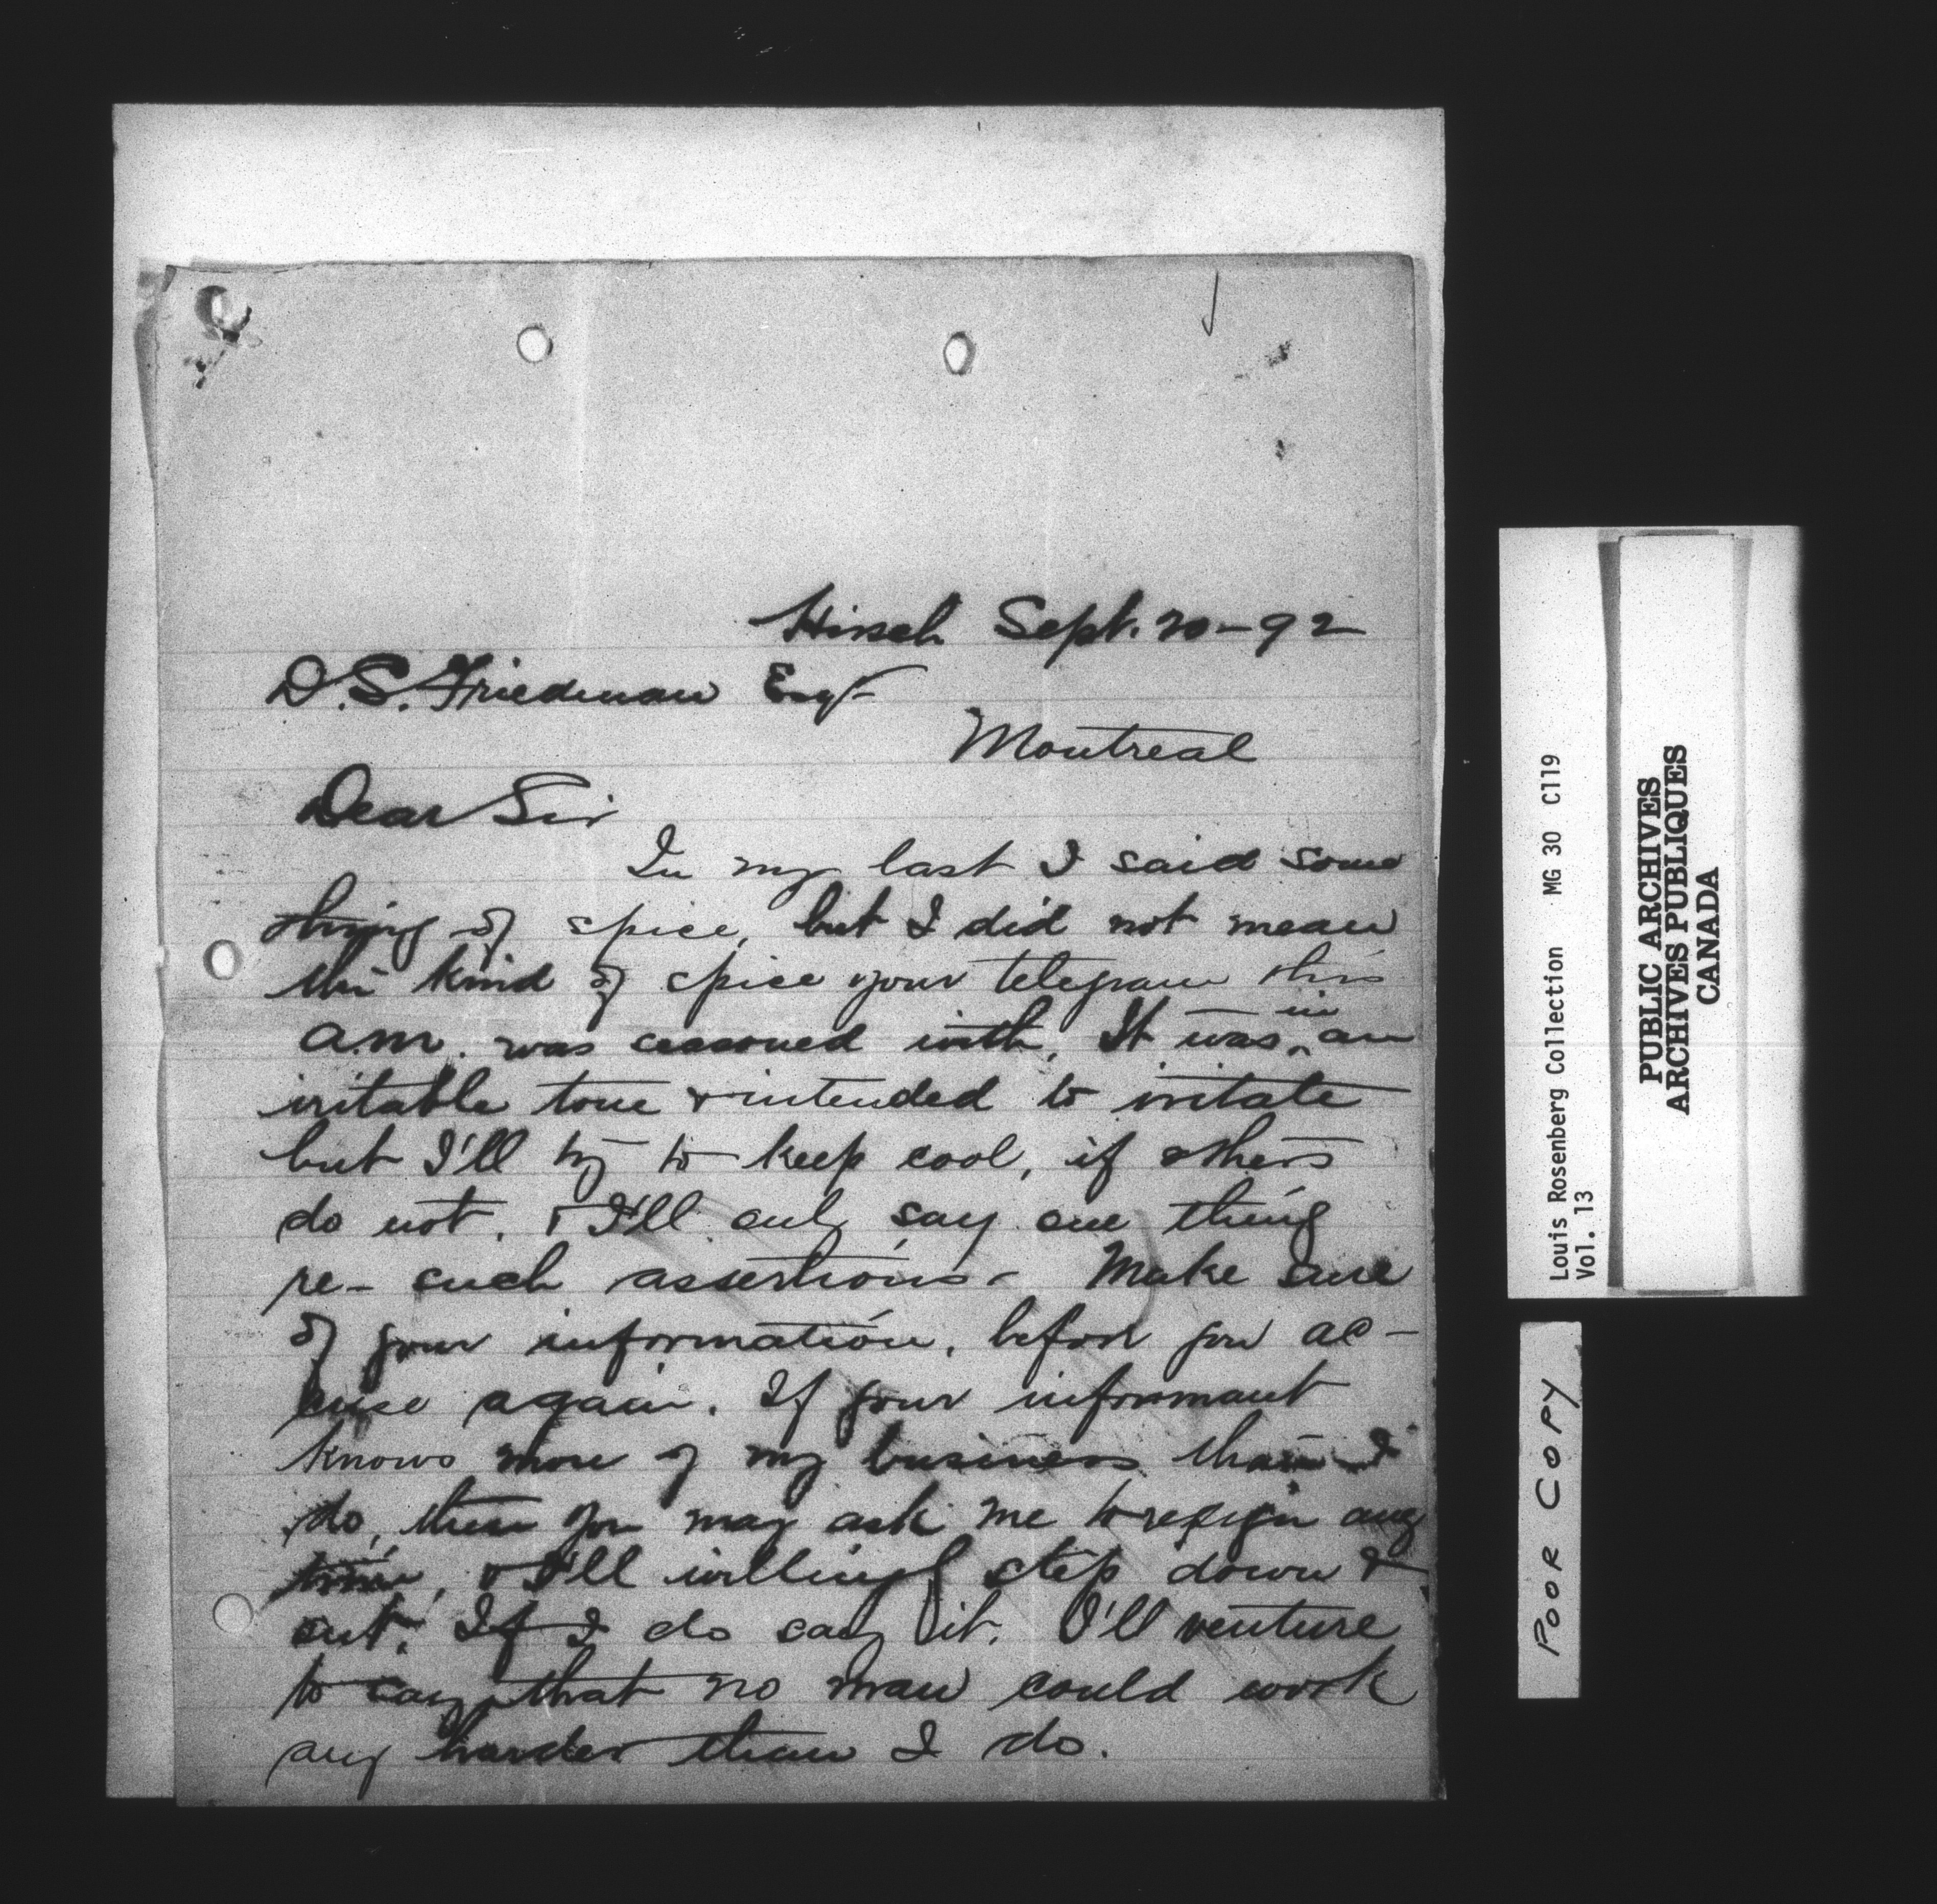 Hirsch Sept. 20-92
D.S. Friedman Esqr
Montreal
Dear Sir
In my last I said some
thing of spice, but I did not mean
the kind of spice your telegram this
a.m. was seasoned with. It was in an
iritable tone & intended to iritate
but I'll try to keep cool, if others
do not. & I'll only say one thing
re- such assertions- Make sure
of your information, before you ac-
cuse again. If your informant
knows more of my business than I
do, then you may ask me to resign any
time, & I'll willingly step down &
out. If I do say it. I'll venture
to say that no man could work
any harder than I do.
Louis Rosenberg Collection MG 30 C119
Vol. 13
PUBLIC ARCHIVES
ARCHIVES PUBLIQUES
CANADA
POOR COPY